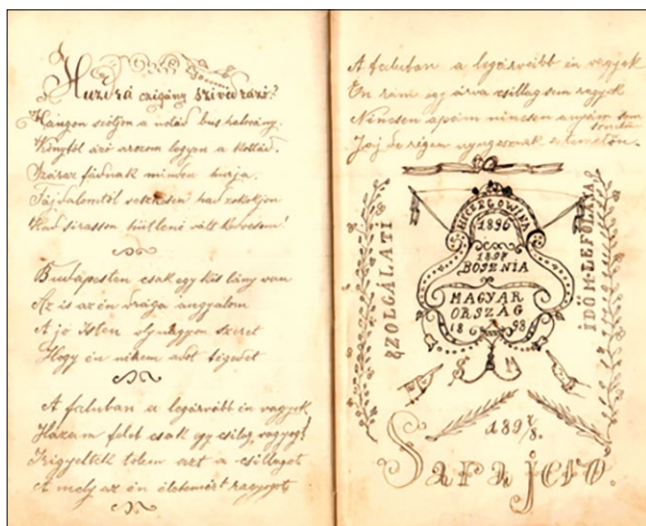 Huzd rá czigány szived rázó?
Hangon szóljon a nótád bus halvány.
Könytöl ázó arczom legyen a kottád.
Száraz fádnak minden hurja.
Fájdalomtól reszkessen had zokogjon
Had sirasson hütlené vált kedvesem!
Budapesten csak egy kis lány van
Az is az én drága angyalom
A jó isten oly nagyon szeret
Hogy én nékem adot tégedet
A faluban a legárvább én vagyok
Házam felet csak egy csileg ragyog!
Irigyeltek tőlem ezt a csillagot
A mely az én életemért ragyogot
A faluban a legárvább én vagyok
Én rám egy árva csillag sem ragyok
Nincsen apám nincsen anyám sem
Jaj de régen nyugosznak a temetőn.
SZOLGÁLATI
IDŐM LEFOLYÁSA
HERCEGOWINA
1896
1897
BOSZNIA
MAGYAR
ORSZÁG
18 98
1897/8.
Sarajevo.